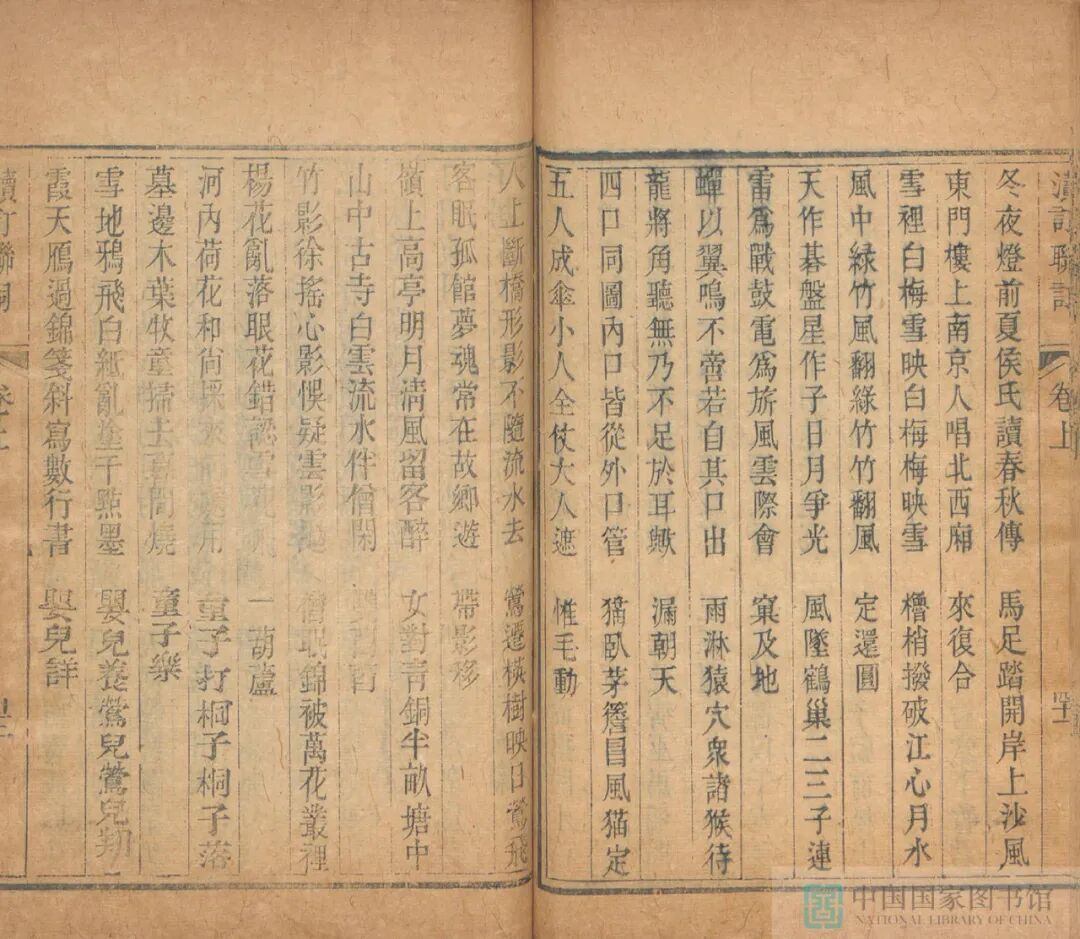 訂聯
卷上
冬夜燈前夏侯氏讀春秋傳 馬足踏開岸上沙風
東門樓上南京人唱北西廂 來復合
雪裡白梅雪映白梅梅映雪 櫓梢撥破江心月水
風中綠竹風翻綠竹竹翻風 定還圓
天作碁盤星作子日月爭光 風墜鶴巢二三子連
雷爲戰鼓電爲旂風雲際會 窠及地
蟬以翼鳴不啻若自其口出 雨淋猿穴衆諸猴待
龍將角聽無乃不足於耳歟 漏朝天
四口同圖內口皆從外口管 猫臥茅簷昌風猫定
五人成傘小人全仗大人遮 惟毛動
人上斷橋形影不隨流水去 鶯遷橫樹映日鶯飛
客眠孤館夢魂常在故鄉遊 帶影移
嶺上高亭明月淸風留客醉 女對靑銅半畝塘中
山中古寺白雲流水伴僧閑
竹影徐搖心影悞疑雲影 僧眠錦被萬花叢裡
楊花亂落眼花錯認雪 一葫蘆
河內荷花和尙採 用 童子打桐子桐子落
墓邊木葉牧童掃去 間燒 童子樂
雪地鴉飛白紙亂塗千點墨 嬰兒養鶯兒鶯兒翔
霞天鴈過錦箋斜寫數行書 嬰兒詳
續訂聯
中国国家图书馆
NATIONAL LIBRARY OF CHINA